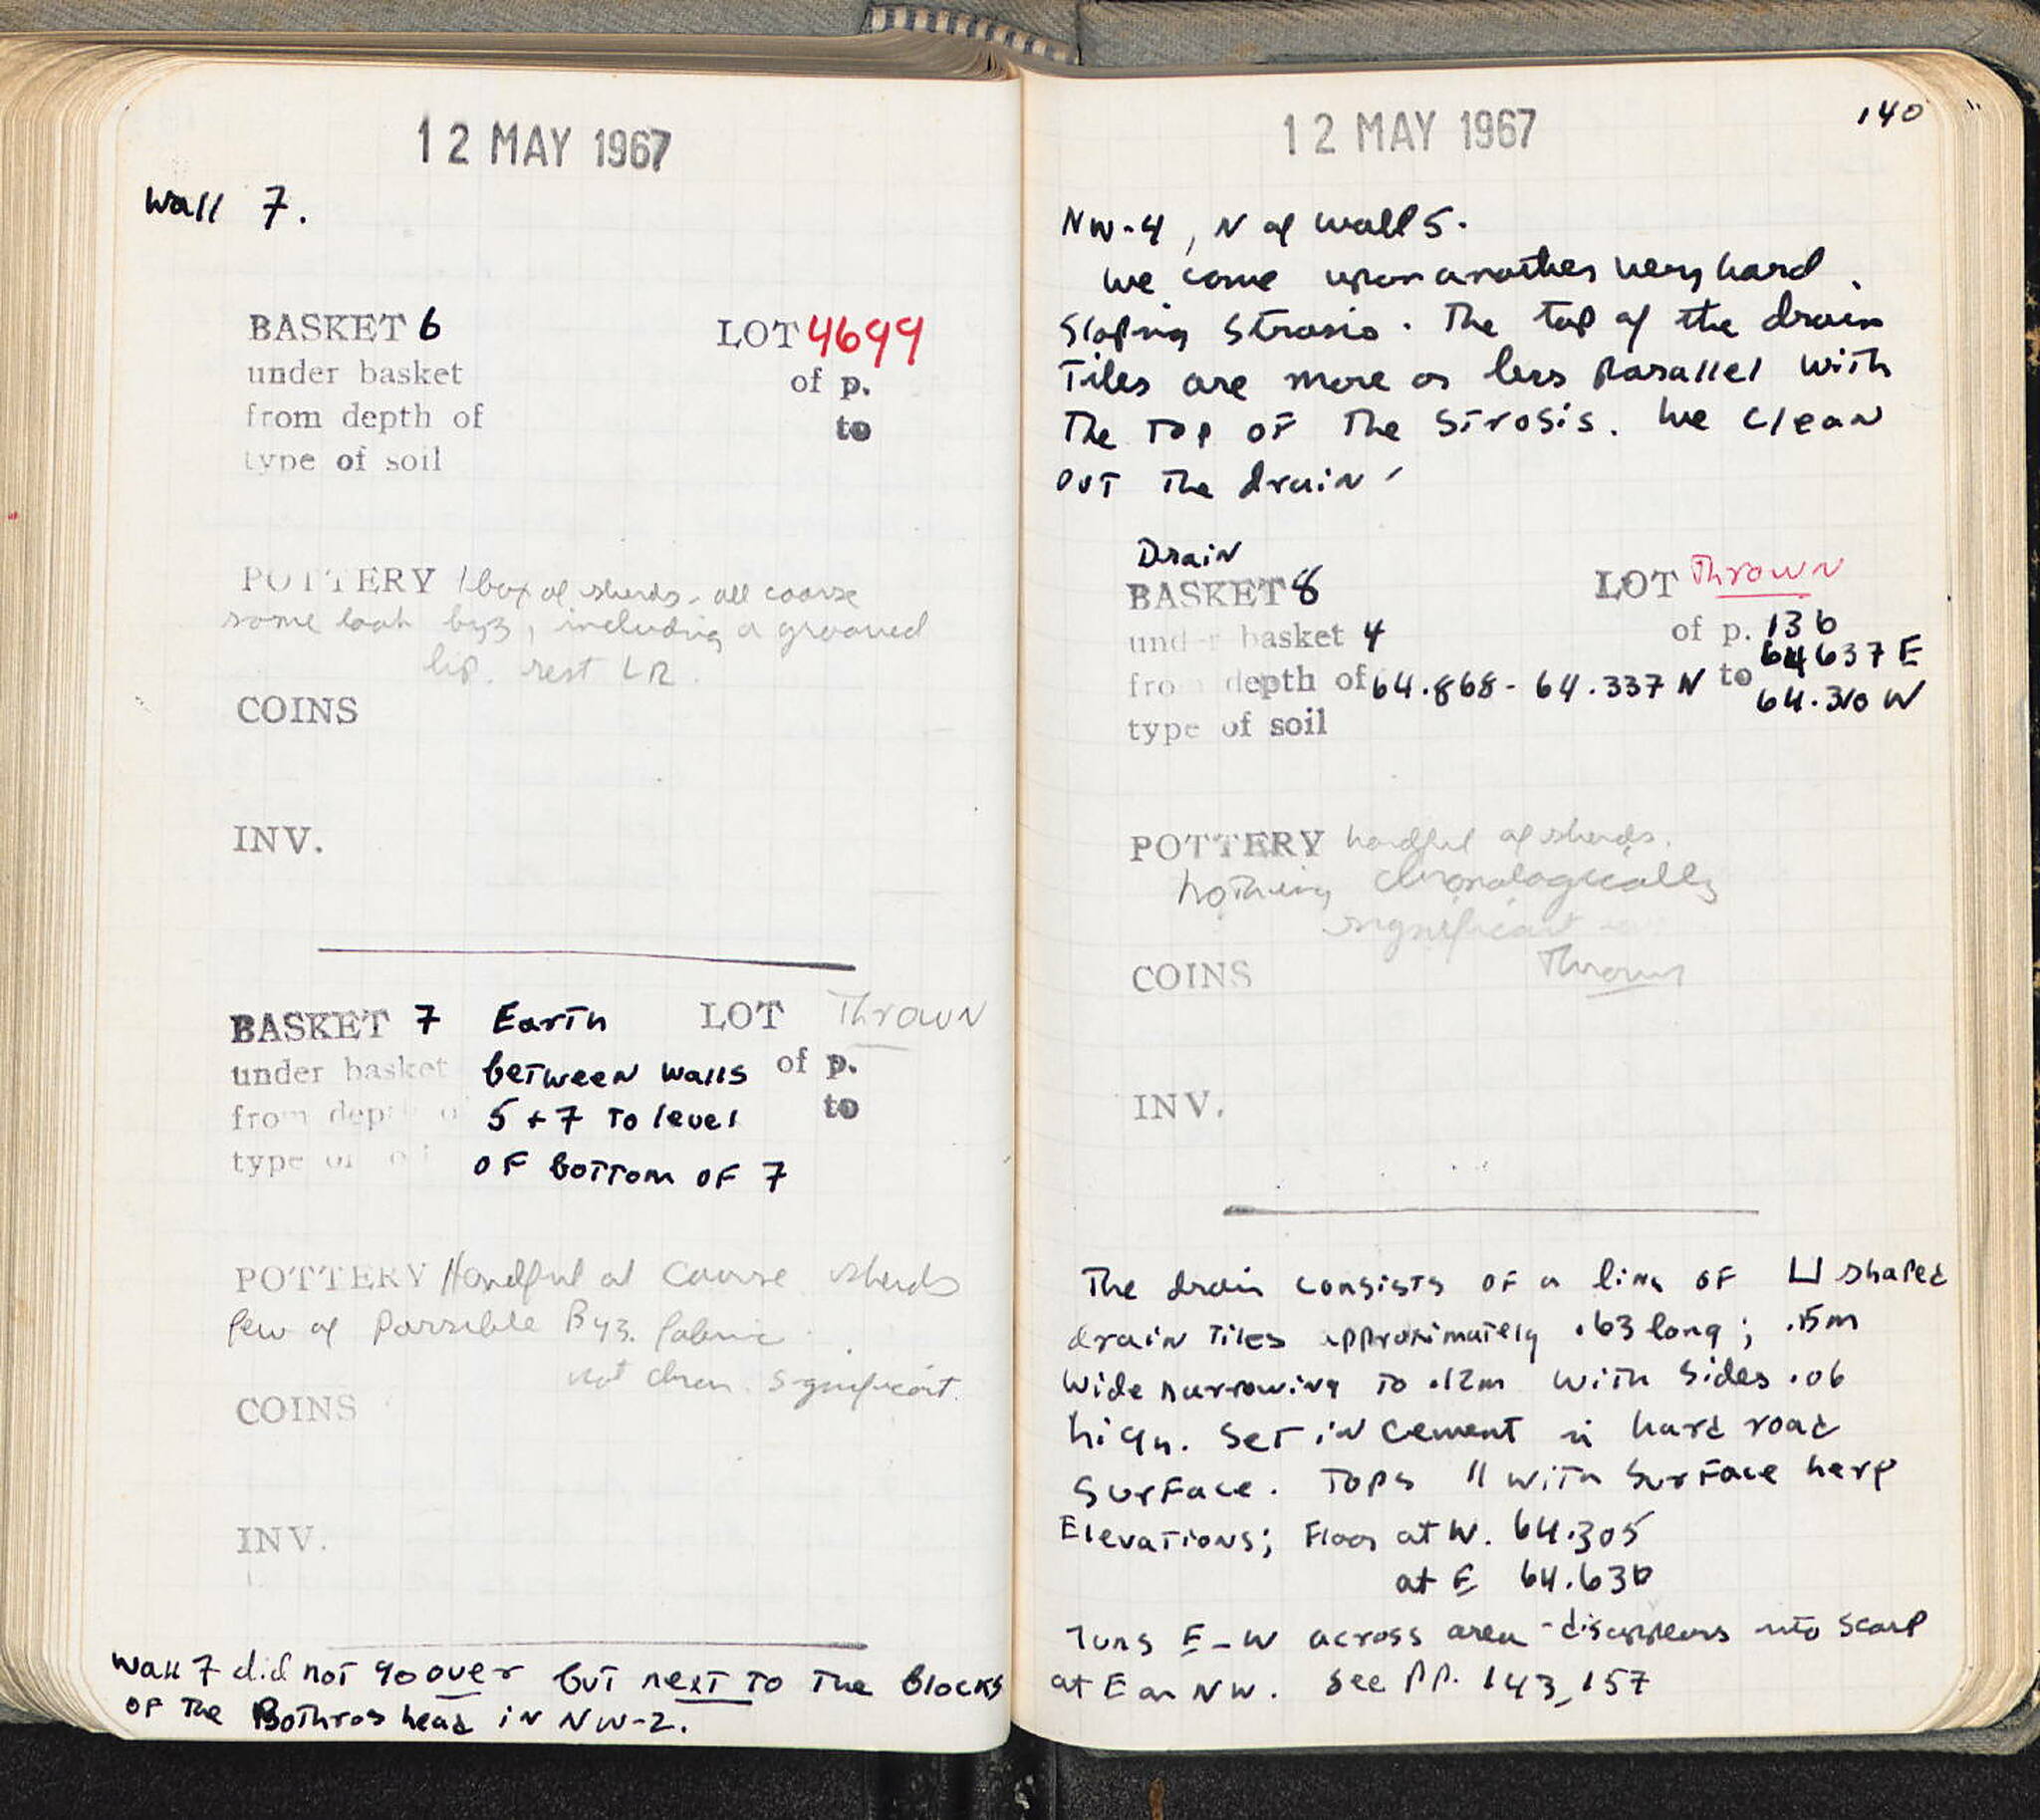 12 MAY 1967
Wall 7.
BASKET 6 LOT 4699
under basket of p.
from depth of to
type of soil
POTTERY 1 box of sherds - all coarse
some look byz, including a grooved
lip. rest LR.
COINS
INV.
BASKET 7 Earth LOT Thrown
under basket between walls of p.
from depth of 5 + 7 to level to
type of soil of bottom of 7
POTTERY Handful of coarse sherds
few of possible Byz. fabric
not chron. significant.
COINS
INV.
Wall 7 did not go over but next to the blocks
of the Bothros head in NW-2.
140
12 MAY 1967
NW-4, N of wall 5.
We come upon another very hard
sloping strosis. The top of the drain
tiles are more or less parallel with
the top of the strosis. We clean
out the drain.
Drain
BASKET 8 LOT Thrown
under basket 4 of p. 136
from depth of 64.868 - 64.337 N to 64637 E
64.310 W
type of soil
POTTERY handful of sherds.
nothing chronologically
significant
Thrown
COINS
INV.
The drain consists of a line of ⊔ shaped
drain tiles approximately .63 long; .15m
wide narrowing to .12m with sides .06
high. Set in cement in hard road
surface. Tops || with surface here
Elevations; Floor at W. 64.305
at E 64.636
runs E-W across area - disappears into scarp
at E on NW. See pp. 143, 157